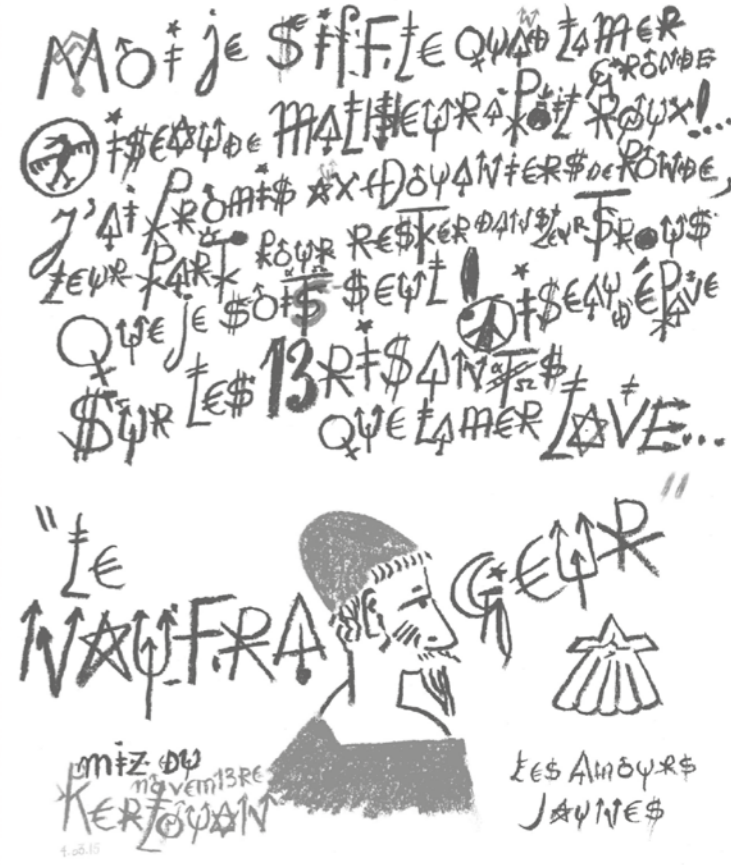 Moi je SIFFLE QUAND LA MER
GRONDE
OISEAU DE MALHEUR A POIL ROUX!...
J'AI PROMIS AUX DOUANIERS DE RONDE,
LEUR PART POUR RESTER DANS LEUR TROUS
QUE je SOIS SEUL ! OISEAU D'ÉPAVE
SUR LES 13RISANTS QUE LA MER LAVE...
"LE
NAUFRAGEUR"
MIZ DU
NOVEM13RE
KERLOUAN
LES AMOURS
JAUNES